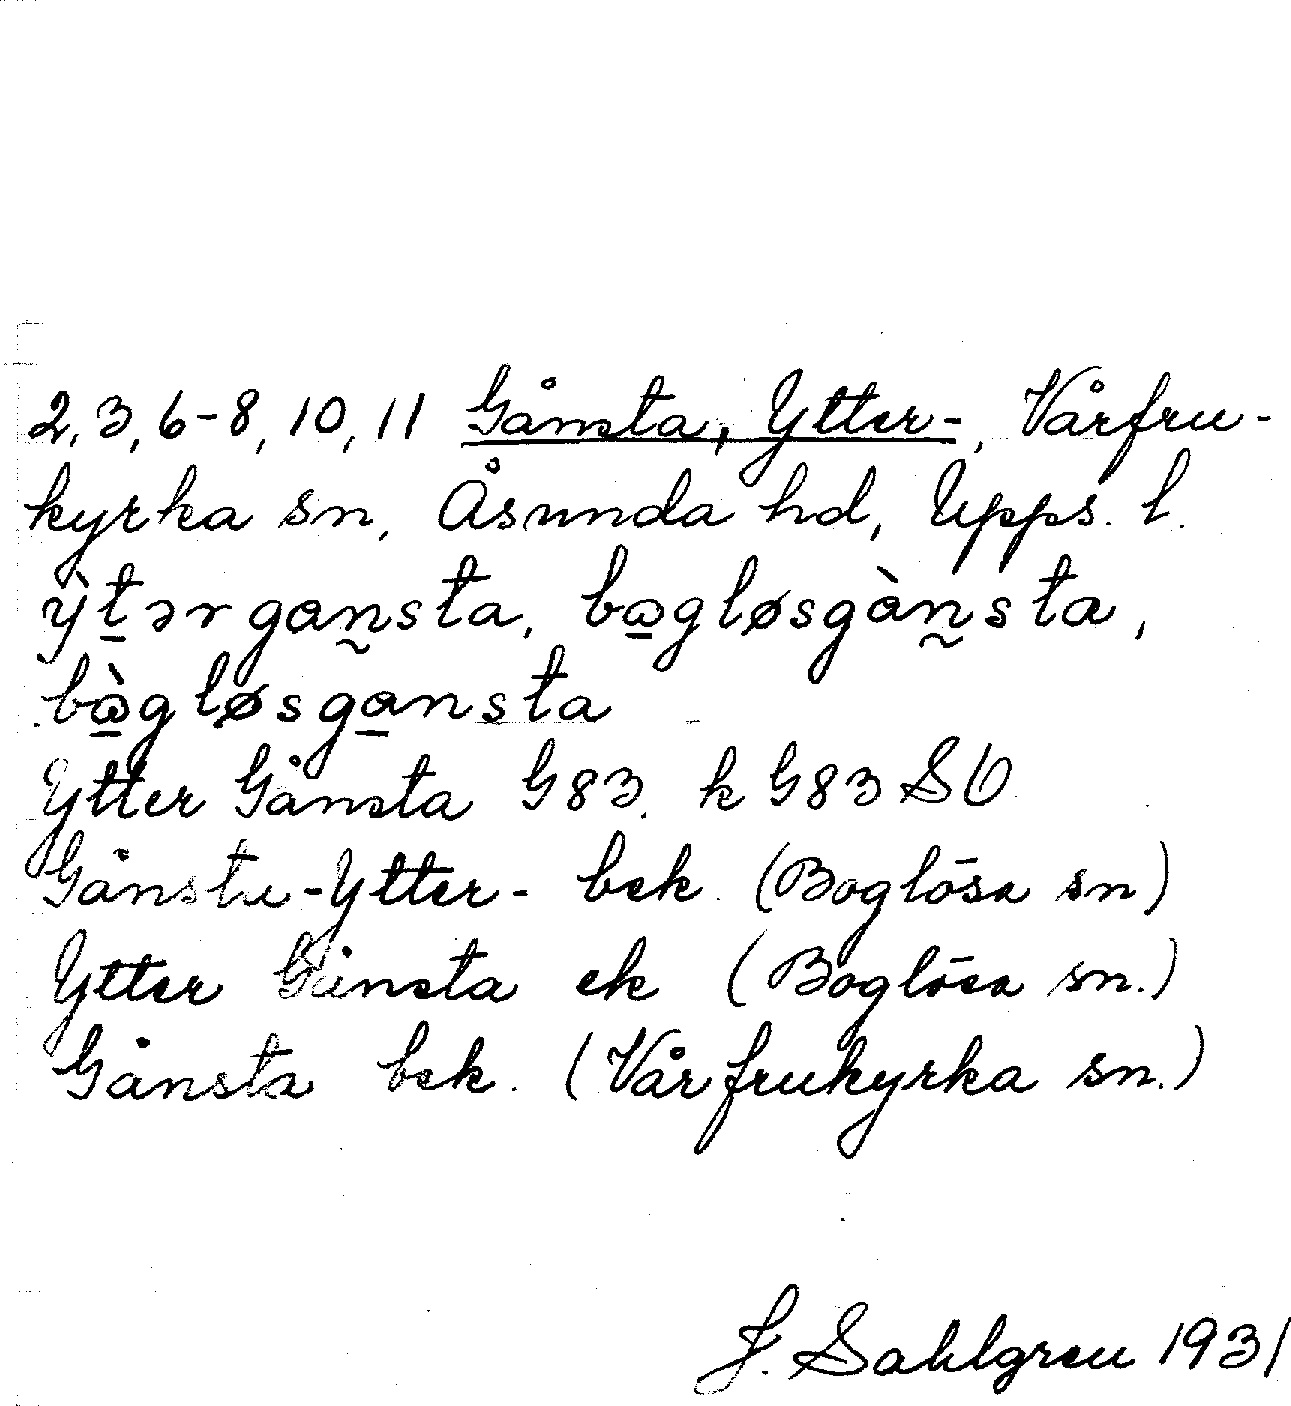 2, 3, 6-8, 10, 11 Gånsta, Ytter-, Vårfru-
kyrka sn, Åsunda hd, Upps. l.
ỳt̠ərgan̰sta, ba̠gløsgàn̰sta,
bà̠gløsga̠nsta
Ytter Gånsta G83. k G83 SO
Gånsta-Ytter- bek. (Boglösa sn)
Ytter Gånsta ek (Boglösa sn.)
Gånsta bek. (Vårfrukyrka sn.)
J. Sahlgren 1931